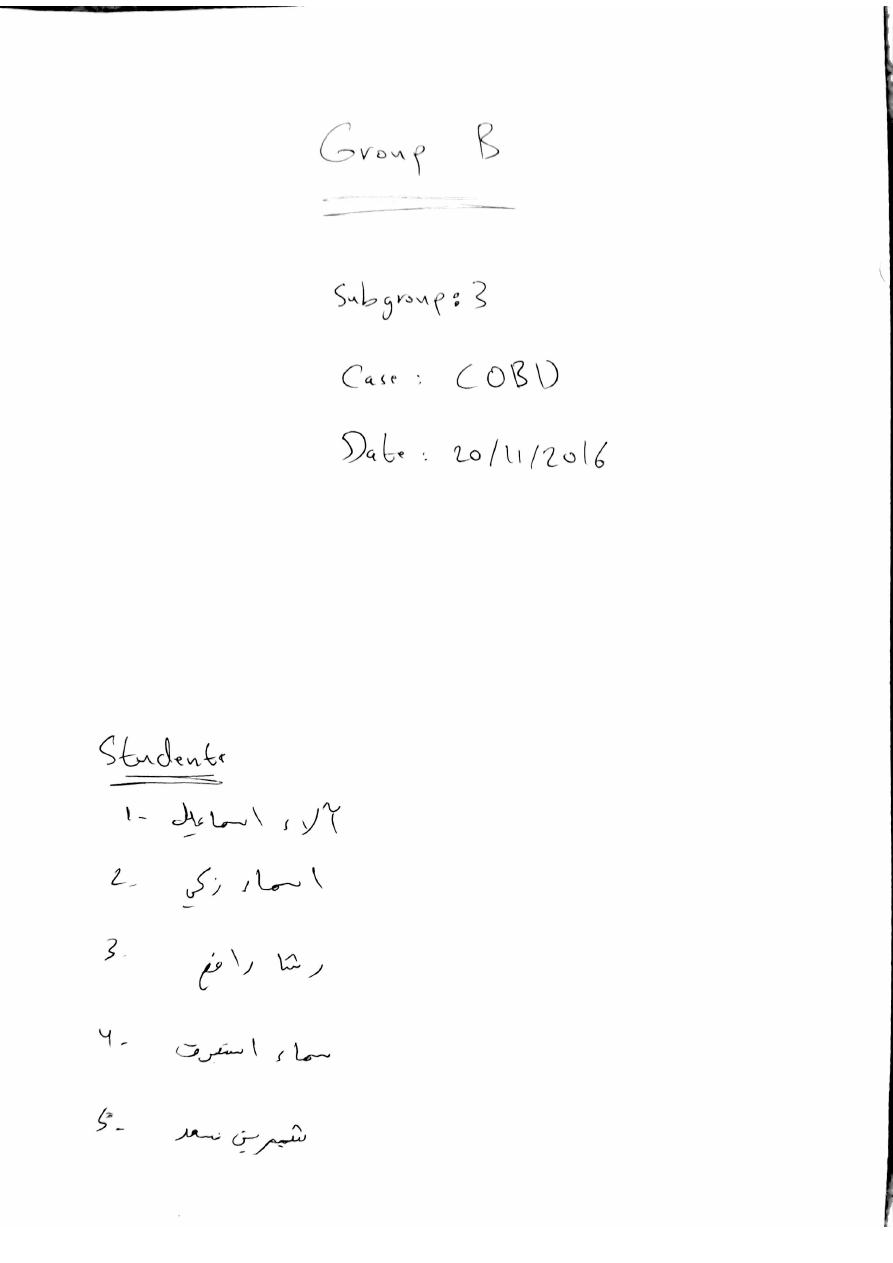 Group B
Subgroup: 3
Case: COBD
Date: 20/11/2016
Students
1- آلاء اسماعيل
2- اسماء زكي
3- رشا رافع
4- سماء استبرق
5- شيرين سعد